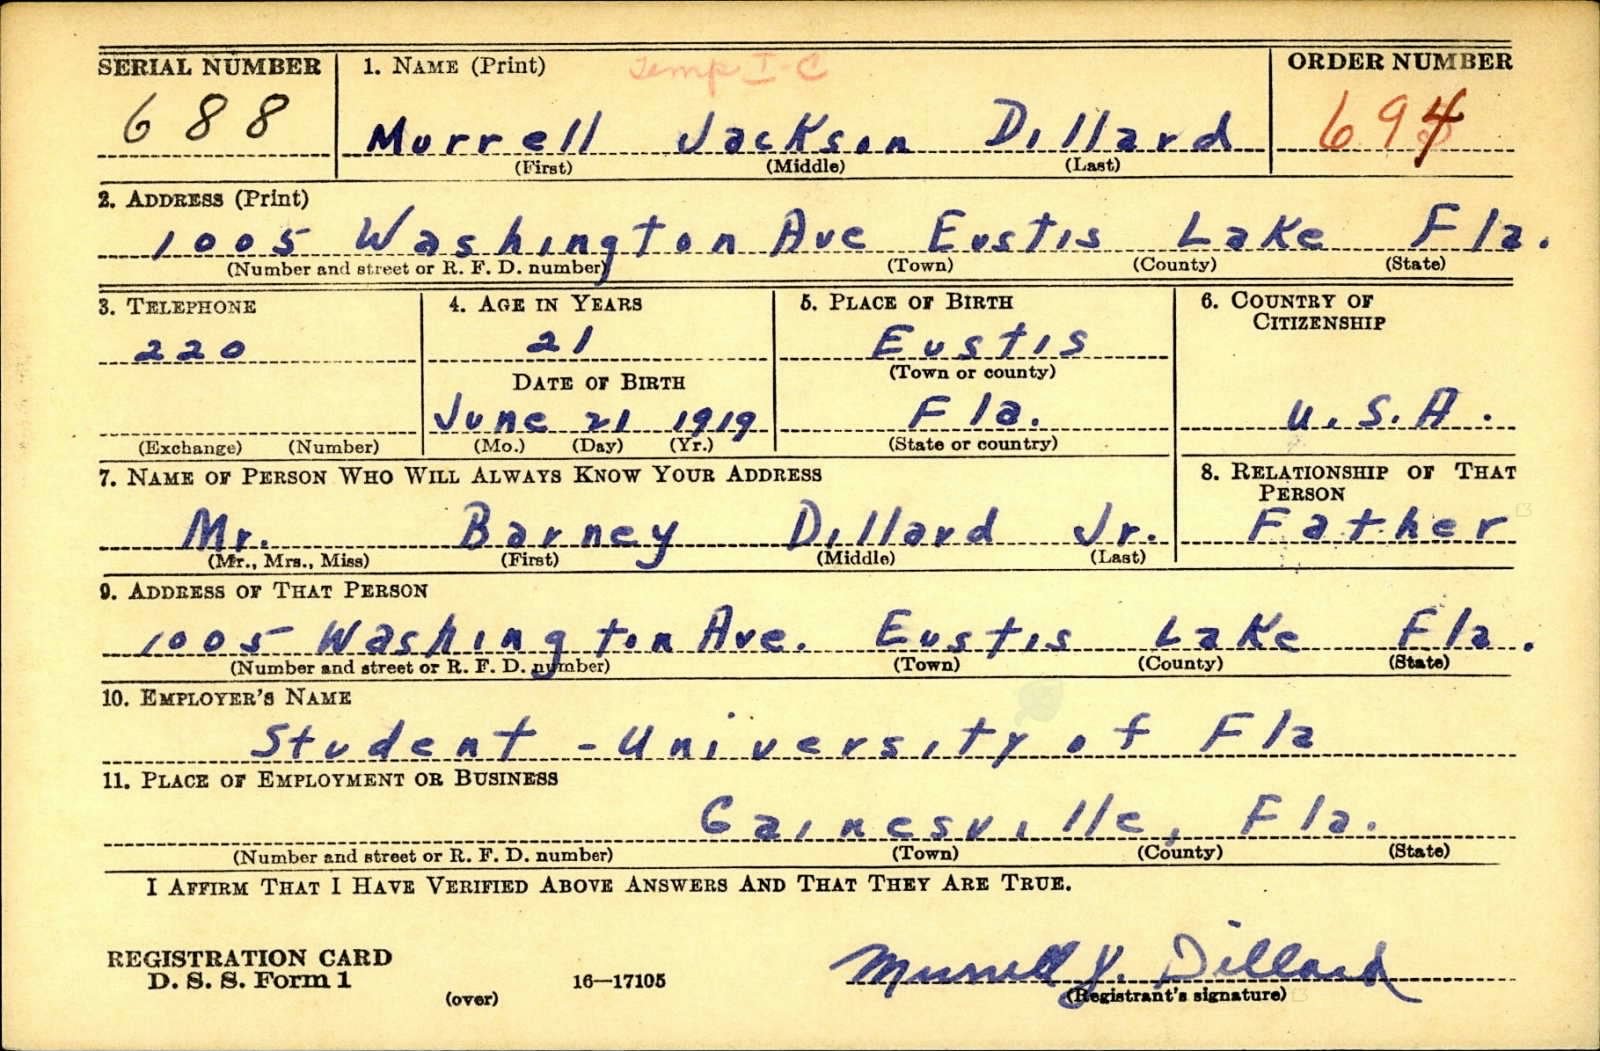 SERIAL NUMBER 1. NAME (Print) Temp I-C ORDER NUMBER
688 Murrell Jackson Dillard 694
(First) (Middle) (Last)
2. ADDRESS (Print)
1005 Washington Ave Eustis Lake Fla.
(Number and street or R. F. D. number) (Town) (County) (State)
3. TELEPHONE 4. AGE IN YEARS 5. PLACE OF BIRTH 6. COUNTRY OF CITIZENSHIP
220 21 Eustis
(Town or county)
DATE OF BIRTH
June 21 1919 Fla. U.S.A.
(Exchange) (Number) (Mo.) (Day) (Yr.) (State or country)
7. NAME OF PERSON WHO WILL ALWAYS KNOW YOUR ADDRESS 8. RELATIONSHIP OF THAT PERSON
Mr. Barney Dillard Jr. Father
(Mr., Mrs., Miss) (First) (Middle) (Last)
9. ADDRESS OF THAT PERSON
1005 Washington Ave. Eustis Lake Fla.
(Number and street or R. F. D. number) (Town) (County) (State)
10. EMPLOYER'S NAME
Student - University of Fla
11. PLACE OF EMPLOYMENT OR BUSINESS
Gainesville, Fla.
(Number and street or R. F. D. number) (Town) (County) (State)
I AFFIRM THAT I HAVE VERIFIED ABOVE ANSWERS AND THAT THEY ARE TRUE.
REGISTRATION CARD
D. S. S. Form 1 16—17105 Murrell J. Dillard
(over) (Registrant's signature)